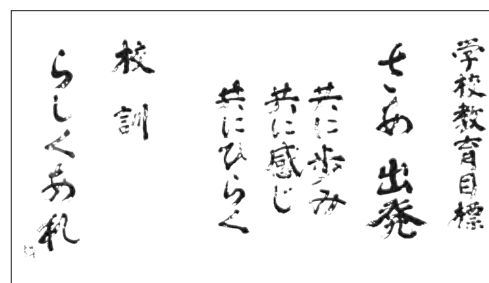 学校教育目標
さあ 出発
共に歩み
共に感じ
共にひらく
校訓
らしくあれ